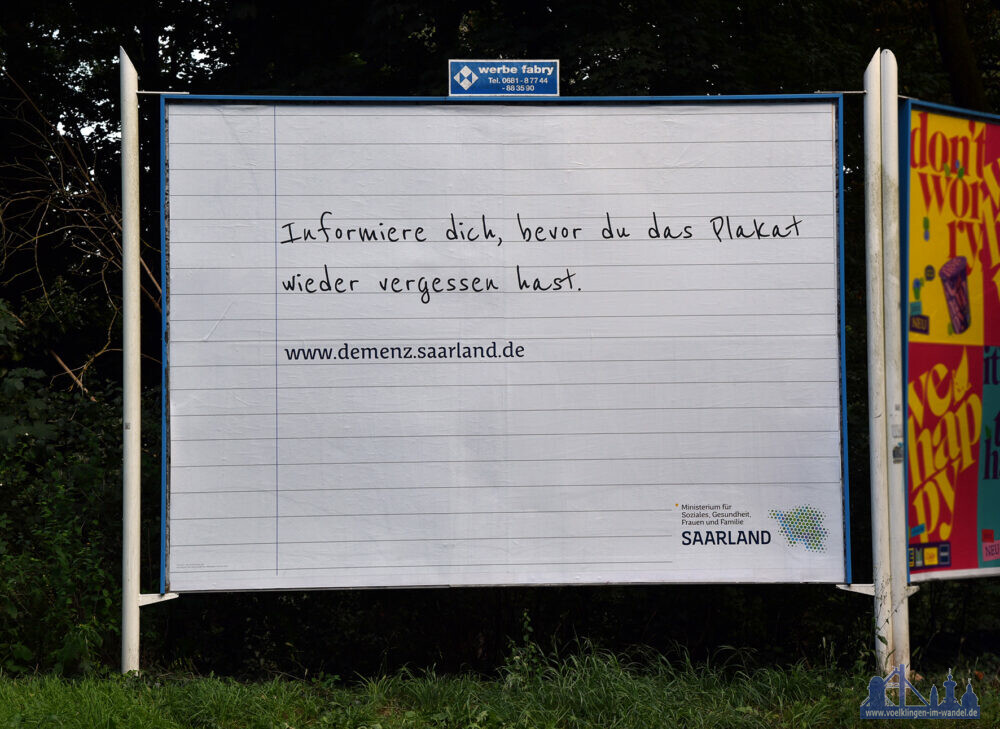 werbe fabry
Tel. 0681 - 8 77 44
- 88 35 90
Informiere dich, bevor du das Plakat
wieder vergessen hast.
www.demenz.saarland.de
Ministerium für
Soziales, Gesundheit,
Frauen und Familie
SAARLAND
don't
worry
NEU
happy
NEU
www.voelklingen-im-wandel.de